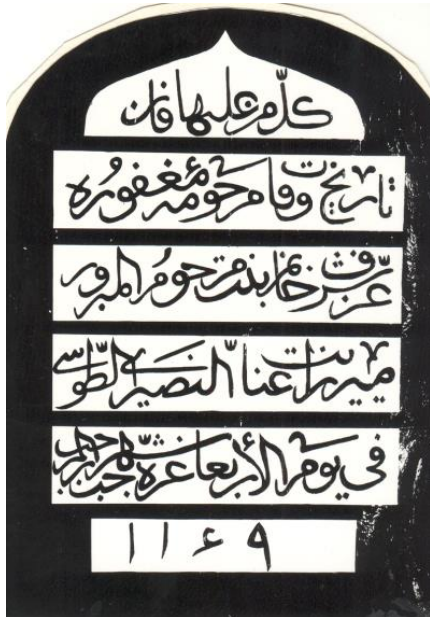 كل من عليها فان
تاريخ وفات مرحومه مغفوره
خانم بنت مرحوم المبرور
ميرزا عنايت النصيري الطوسي
في يوم الأربعا غرة شهر رجب المرجب
١١۴٩